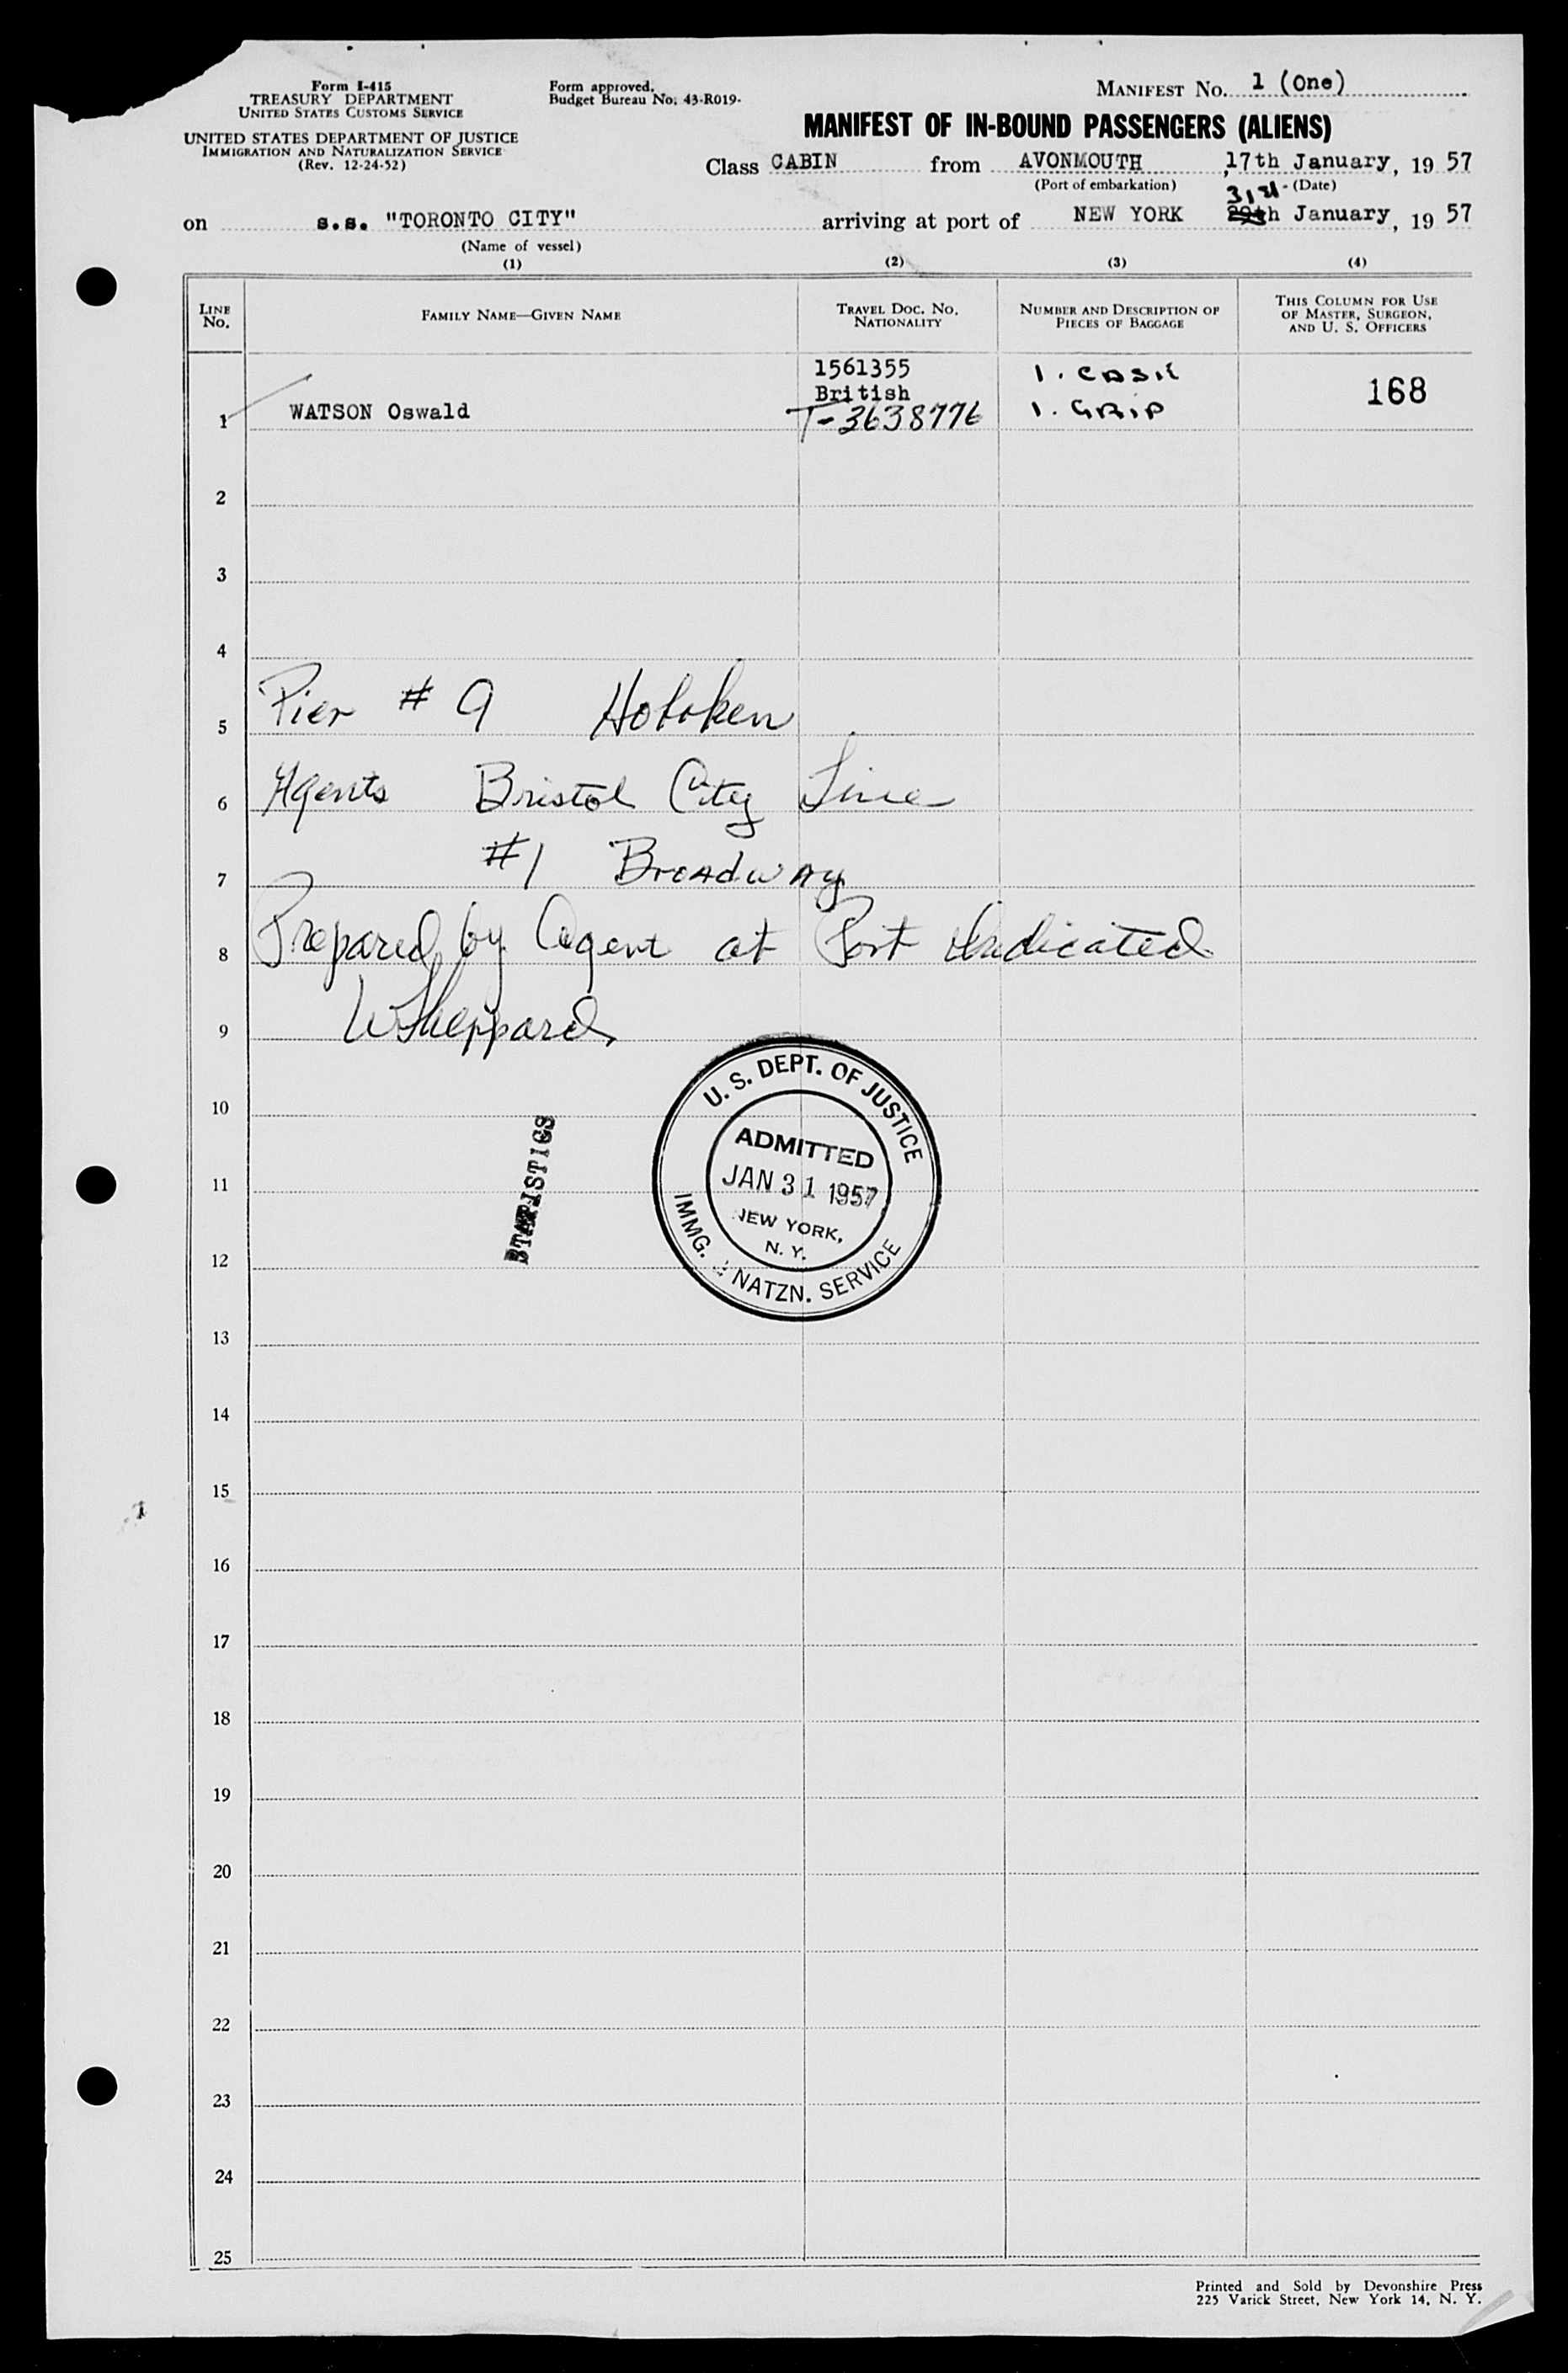 Form I-415
TREASURY DEPARTMENT
UNITED STATES CUSTOMS SERVICE
UNITED STATES DEPARTMENT OF JUSTICE
IMMIGRATION AND NATURALIZATION SERVICE
(Rev. 12-24-52)
Form approved.
Budget Bureau No. 43-R019-
MANIFEST NO. 1 (One)
MANIFEST OF IN-BOUND PASSENGERS (ALIENS)
Class CABIN from AVONMOUTH, 17th January, 19 57
(Port of embarkation) (Date)
31st
on s.s. "TORONTO CITY" arriving at port of NEW YORK January, 19 57
(Name of vessel)
(1) (2) (3) (4)
LINE NO. FAMILY NAME—GIVEN NAME TRAVEL DOC. NO. NATIONALITY NUMBER AND DESCRIPTION OF PIECES OF BAGGAGE THIS COLUMN FOR USE OF MASTER, SURGEON, AND U. S. OFFICERS
1561355 1. CASE
British 168
1 WATSON Oswald T-3638776 1. GRIP
2
3
4
5 Pier # 9 Hoboken
6 Agents Bristol City Line
7 #1 Broadway
8 Prepared by Agent at Port Indicated
9 WSheppard
10
11
12
STATISTICS
U. S. DEPT. OF JUSTICE
ADMITTED
JAN 31 1957
NEW YORK,
N. Y.
IMMG. & NATZN. SERVICE
13
14
15
16
17
18
19
20
21
22
23
24
25
Printed and Sold by Devonshire Press
225 Varick Street, New York 14, N. Y.